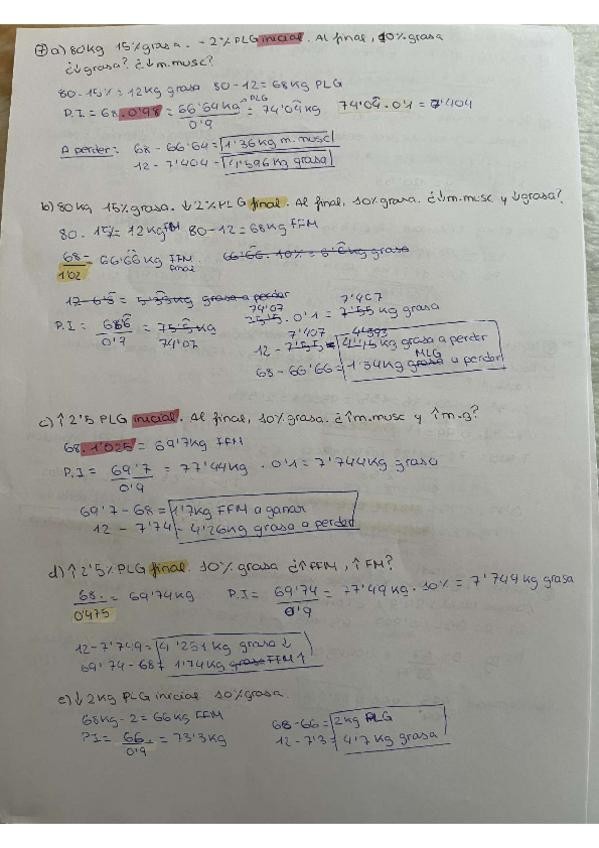 7 a) 80kg 15% grasa. - 2% PLG inicial. Al final, 10% grasa
¿↓grasa? ¿↓m.musc?
80 · 15% = 12kg grasa 80 - 12 = 68kg PLG
P.I = 68 · 0'98 = 66'64kg PLG / 0'9 = 74'04kg 74'04 · 0'1 = 7'404
A perder: 68 - 66'64 = 1'36kg m.musc
12 - 7'404 = 4'596kg grasa
b) 80kg 15% grasa. ↓2% PLG final. Al final, 10% grasa. ¿↓m.musc y ↓grasa?
80 · 15% = 12kg FM 80 - 12 = 68kg FFM
68 / 1'02 = 66'66kg FFM final 66'66 · 10% = 6'6kg grasa
12 - 6'6 = 5'33kg grasa a perder
74'07 7'407
P.I = 66'6 / 0'9 = 75'5kg 75'5 · 0'1 = 7'55kg grasa
74'07 7'407 4'593
12 - 7'55 = 4'45kg grasa a perder
MLG
68 - 66'66 = 1'34kg grasa a perder
c) ↑2'5 PLG inicial. Al final, 10% grasa. ¿↑m.musc y ↑m.g?
68 · 1'025 = 69'7kg FFM
P.I = 69'7 / 0'9 = 77'44kg · 0'1 = 7'744kg grasa
69'7 - 68 = 1'7kg FFM a ganar
12 - 7'74 = 4'26kg grasa a perder
d) ↑2'5% PLG final. 10% grasa ¿↑FFM, ↑FM?
68 / 0'975 = 69'74kg P.I = 69'74 / 0'9 = 77'49kg · 10% = 7'749kg grasa
12 - 7'749 = 4'251kg grasa ↓
69'74 - 68 = 1'74kg grasa FFM ↑
e) ↓2kg PLG inicial 10% grasa.
68kg - 2 = 66kg FFM 68 - 66 = 2kg PLG
PI = 66 / 0'9 = 73'3kg 12 - 7'3 = 4'7kg grasa